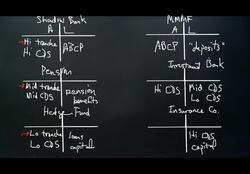 Shadow Bank
A L
Hi tranche ABCP
Hi CDS
Pension
Mid tranche pension
Mid CDS benefits
Hedge Fund
Lo tranche loans
Lo CDS capital
MMMF
A L
ABCP "deposits"
Investment Bank
Hi CDS Mid CDS
Lo CDS
Insurance Co.
Hi CDS
capital